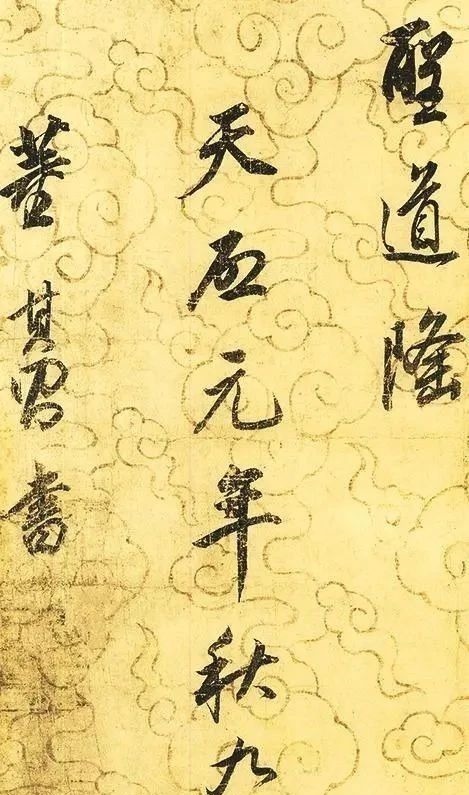 聖道隆
天启元年秋九
董其昌書